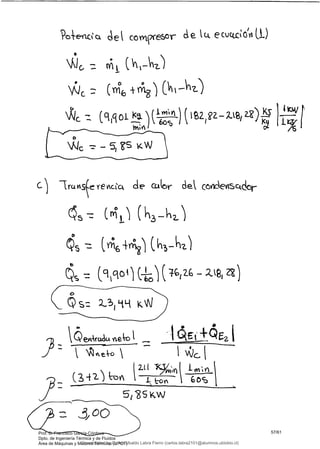 Potencia del compresor de la ecuación (1)
Ẇc = ṁ1 (h1-h2)
Ẇc = (ṁ6 + ṁ8) (h1-h2)
Ẇc = (9,901 kg/min) (1 min/60s) (182,82-218,28) KJ/Kg | 1kW / 1 KJ/s |
Ẇc = - 5,85 KW
c) Transferencia de calor del condensador
Q̇s = (ṁ1) (h3-h2)
Q̇s = (ṁ6+ṁ8) (h3-h2)
Q̇s = (9,901) (1/60) (76,26 - 218,28)
Q̇s = 23,44 KW
β = |Q̇entrada neto| / |Ẇneto| = |Q̇E1 + Q̇E2| / |Ẇc|
β = (3+2) ton | 211 KJ/min / 1 ton | 1 min / 60s | / 5,85 KW
β = 3,00
Prof. D. Francisco García Córdova
57/61
Dpto. de Ingeniería Térmica y de Fluidos
Área de Máquinas y Motores Térmicos (UPCT)
Labra Pierro (carlos.labra2101@alumnos.ubiobio.cl)